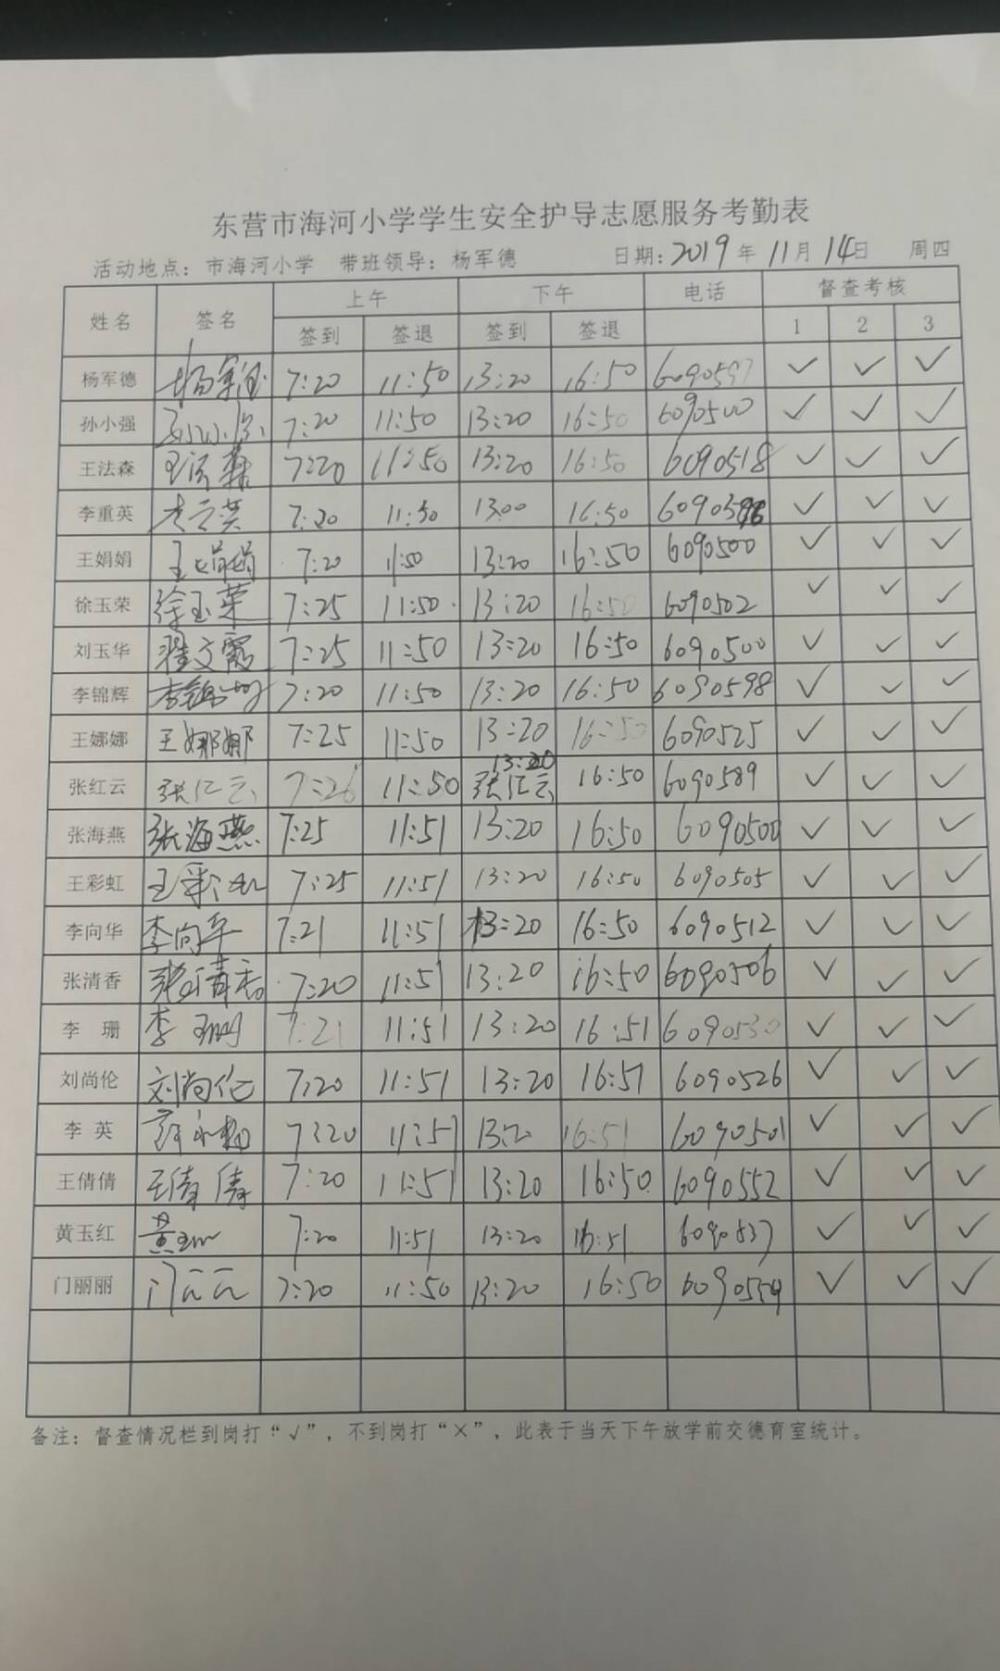 东营市海河小学学生安全护导志愿服务考勤表
活动地点：市海河小学 带班领导：杨军德 日期：2019年11月14日 周四
姓名 签名 上午 下午 电话 督查考核
签到 签退 签到 签退 1 2 3
杨军德 杨军德 7:20 11:50 13:20 16:50 6090597 ✓ ✓ ✓
孙小强 孙小强 7:20 11:50 13:20 16:50 6090500 ✓ ✓ ✓
王法森 王法森 7:20 11:50 13:20 16:50 6090518 ✓ ✓ ✓
李重英 7:20 11:50 13:00 16:50 ✓ ✓ ✓
王娟娟 王娟娟 7:20 11:50 13:20 16:50 6090500 ✓ ✓ ✓
徐玉荣 徐玉荣 7:25 11:50 13:20 16:50 6090502 ✓ ✓ ✓
刘玉华 翟文霞 7:25 11:50 13:20 16:50 6090500 ✓ ✓ ✓
李锦辉 李锦辉 7:20 11:50 13:20 16:50 6090598 ✓ ✓ ✓
王娜娜 王娜娜 7:25 11:50 13:20 16:50 6090525 ✓ ✓ ✓
张红云 张红云 7:26 11:50 13:20 张红云 16:50 6090589 ✓ ✓ ✓
张海燕 张海燕 7:25 11:51 13:20 16:50 6090500 ✓ ✓ ✓
王彩虹 王彩虹 7:25 11:51 13:20 16:50 6090505 ✓ ✓ ✓
李向华 李向华 7:21 11:51 13:20 16:50 6090512 ✓ ✓ ✓
张清香 张清香 7:20 11:51 13:20 16:50 6090506 ✓ ✓ ✓
李 珊 李珊 7:21 11:51 13:20 16:51 6090530 ✓ ✓ ✓
刘尚伦 刘尚伦 7:20 11:51 13:20 16:51 6090526 ✓ ✓ ✓
李 英 7:20 11:51 13:2 16:51 6090501 ✓ ✓ ✓
王倩倩 王倩倩 7:20 11:51 13:20 16:50 6090552 ✓ ✓ ✓
黄玉红 黄玉红 7:20 11:51 13:20 16:51 6090537 ✓ ✓ ✓
门丽丽 门丽丽 7:20 11:50 13:20 16:50 6090554 ✓ ✓ ✓
备注：督查情况栏到岗打“√”，不到岗打“×”，此表于当天下午放学前交德育室统计。